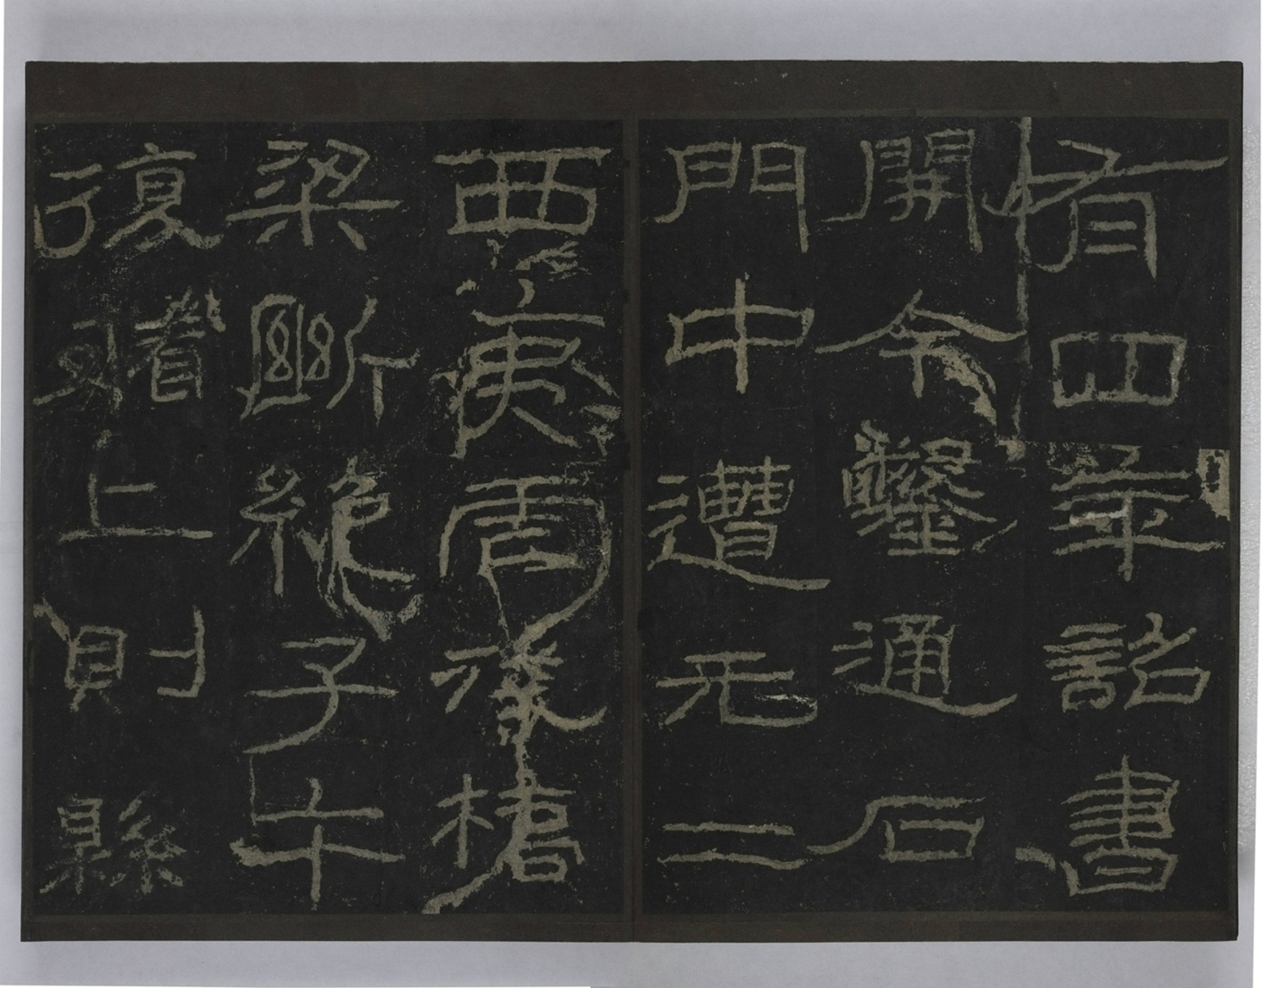 有四年詔書
開余鑿通石
門中遭元二
西夷虐殘橋
梁斷絕子午
復循上則縣